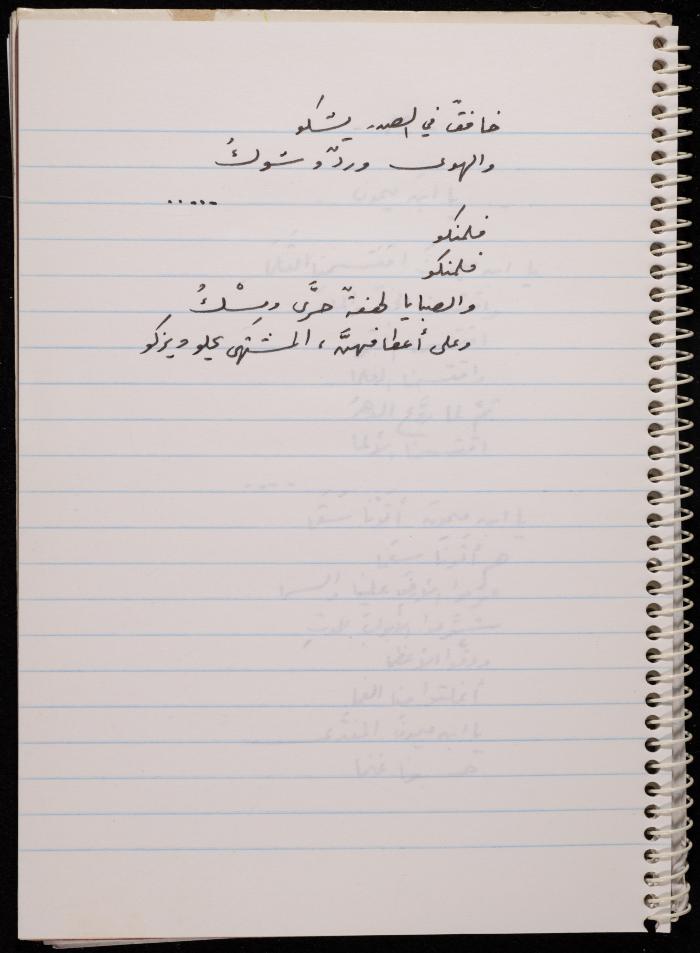 خافقٌ في الصدر يشكو
والهوى وردٌ وشوكُ
.....
فلمنكو
فلمنكو
والصبايا لهفةٌ حرَّى ومِسْكُ
وعلى أعطافهنَّ، المشتَهَى يحلو ويزكو